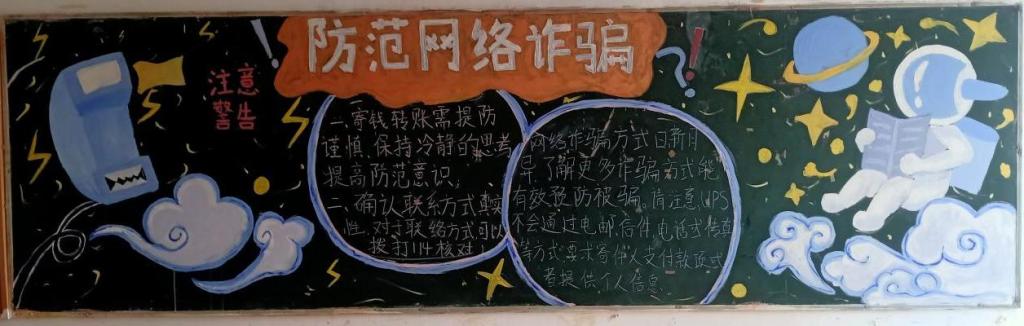 防范网络诈骗
注意
警告
一.寄钱转账需提防
谨慎,保持冷静的思考
提高防范意识,
二、确认联系方式真实
性.对于联络方式可以
拨打114核对
网络诈骗方式日新月
异.了解更多诈骗方式能
有效预防被骗.肯注意UPS
不会通过电邮.信件.电话或传真
等方式要求寄件人支付款项或
者提供个人信息.